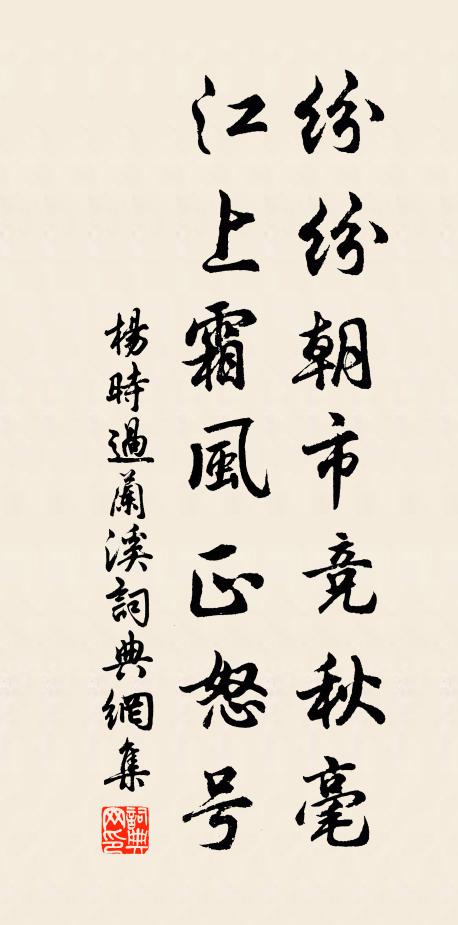 纷纷朝市竞秋毫
江上霜風正怒号
楊時過蘭溪詞典網集
詞典
网印